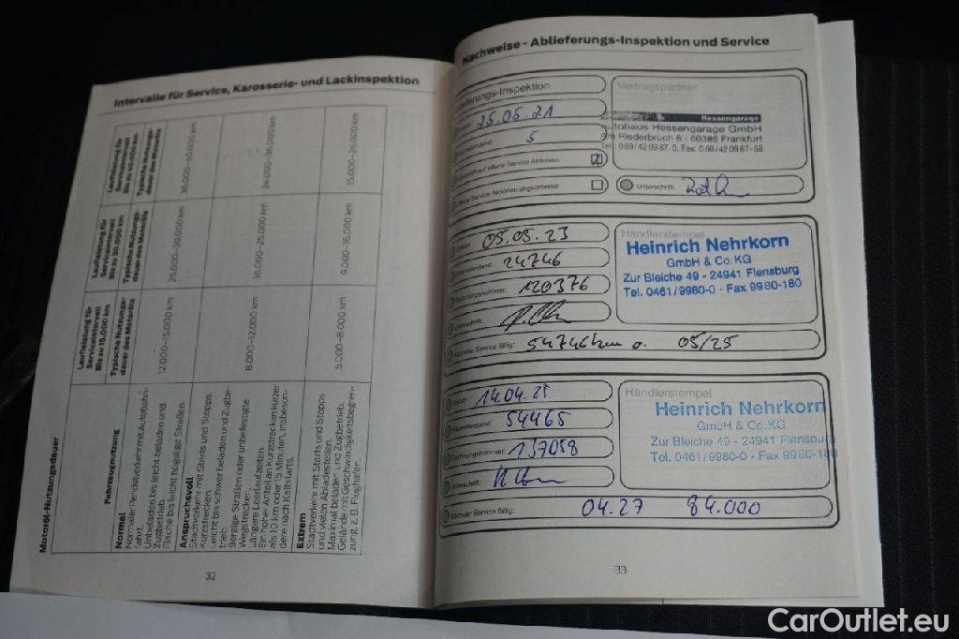 Intervalle für Service, Karosserie- und Lackinspektion
Motoröl-Nutzungsdauer
Fahrzeugnutzung
Laufleistung für Serviceintervall Bis zu 15.000 km
Typische Nutzungsdauer des Motoröls
Laufleistung für Serviceintervall Bis zu 30.000 km
Typische Nutzungsdauer des Motoröls
Laufleistung für Serviceintervall Bis zu 40.000 km
Typische Nutzungsdauer des Motoröls
Normal
Normaler Pendelverkehr mit Autobahnfahrt.
Unbeladen bis leicht beladen und Zugbetrieb.
Flache bis leicht hügelige Straßen
12.000–15.000 km
25.000–30.000 km
Anspruchsvoll
Stadtverkehr mit Starts und Stopps.
Kurzstrecken.
Leicht bis schwer beladen und Zugbetrieb.
Bergige Straßen oder unbefestigte Wegstrecken.
Längere Leerlaufzeiten.
Ein hoher Anteil an Kurzstrecken kürzer als 10 km oder 15 Minuten, insbesondere nach Kaltstarts.
8.000–12.000 km
16.000–25.000 km
24.000–36.000 km
Extrem
Stadtverkehr mit Starts und Stopps und vielen Abladestellen.
Maximal beladen und Zugbetrieb.
Gelände mit Geschwindigkeitsbegrenzung, z. B. Flughäfen.
5.000–8.000 km
9.000–16.000 km
15.000–24.000 km
32
Nachweise - Ablieferungs-Inspektion und Service
lieferungs-Inspektion
25.05.21
5
Vertragspartner
Hessengarage
utohaus Hessengarage GmbH
Riederbruch 8 - 60386 Frankfurt
Tel. 0 69/42 09 87-0, Fax: 0 69/42 09 87-59
Unterschrift:
05.05.23
24746
120376
Händlerstempel
Heinrich Nehrkorn
GmbH & Co. KG
Zur Bleiche 49 - 24941 Flensburg
Tel. 0461/9980-0 - Fax 9980-180
Nächster Service fällig: 54746 km o. 05/25
14.04.25
54465
137058
Händlerstempel
Heinrich Nehrkorn
GmbH & Co. KG
Zur Bleiche 49 - 24941 Flensbu
Tel. 0461/9980-0 - Fax 9980-18
Nächster Service fällig: 04.27 84.000
33
CarOutlet.eu